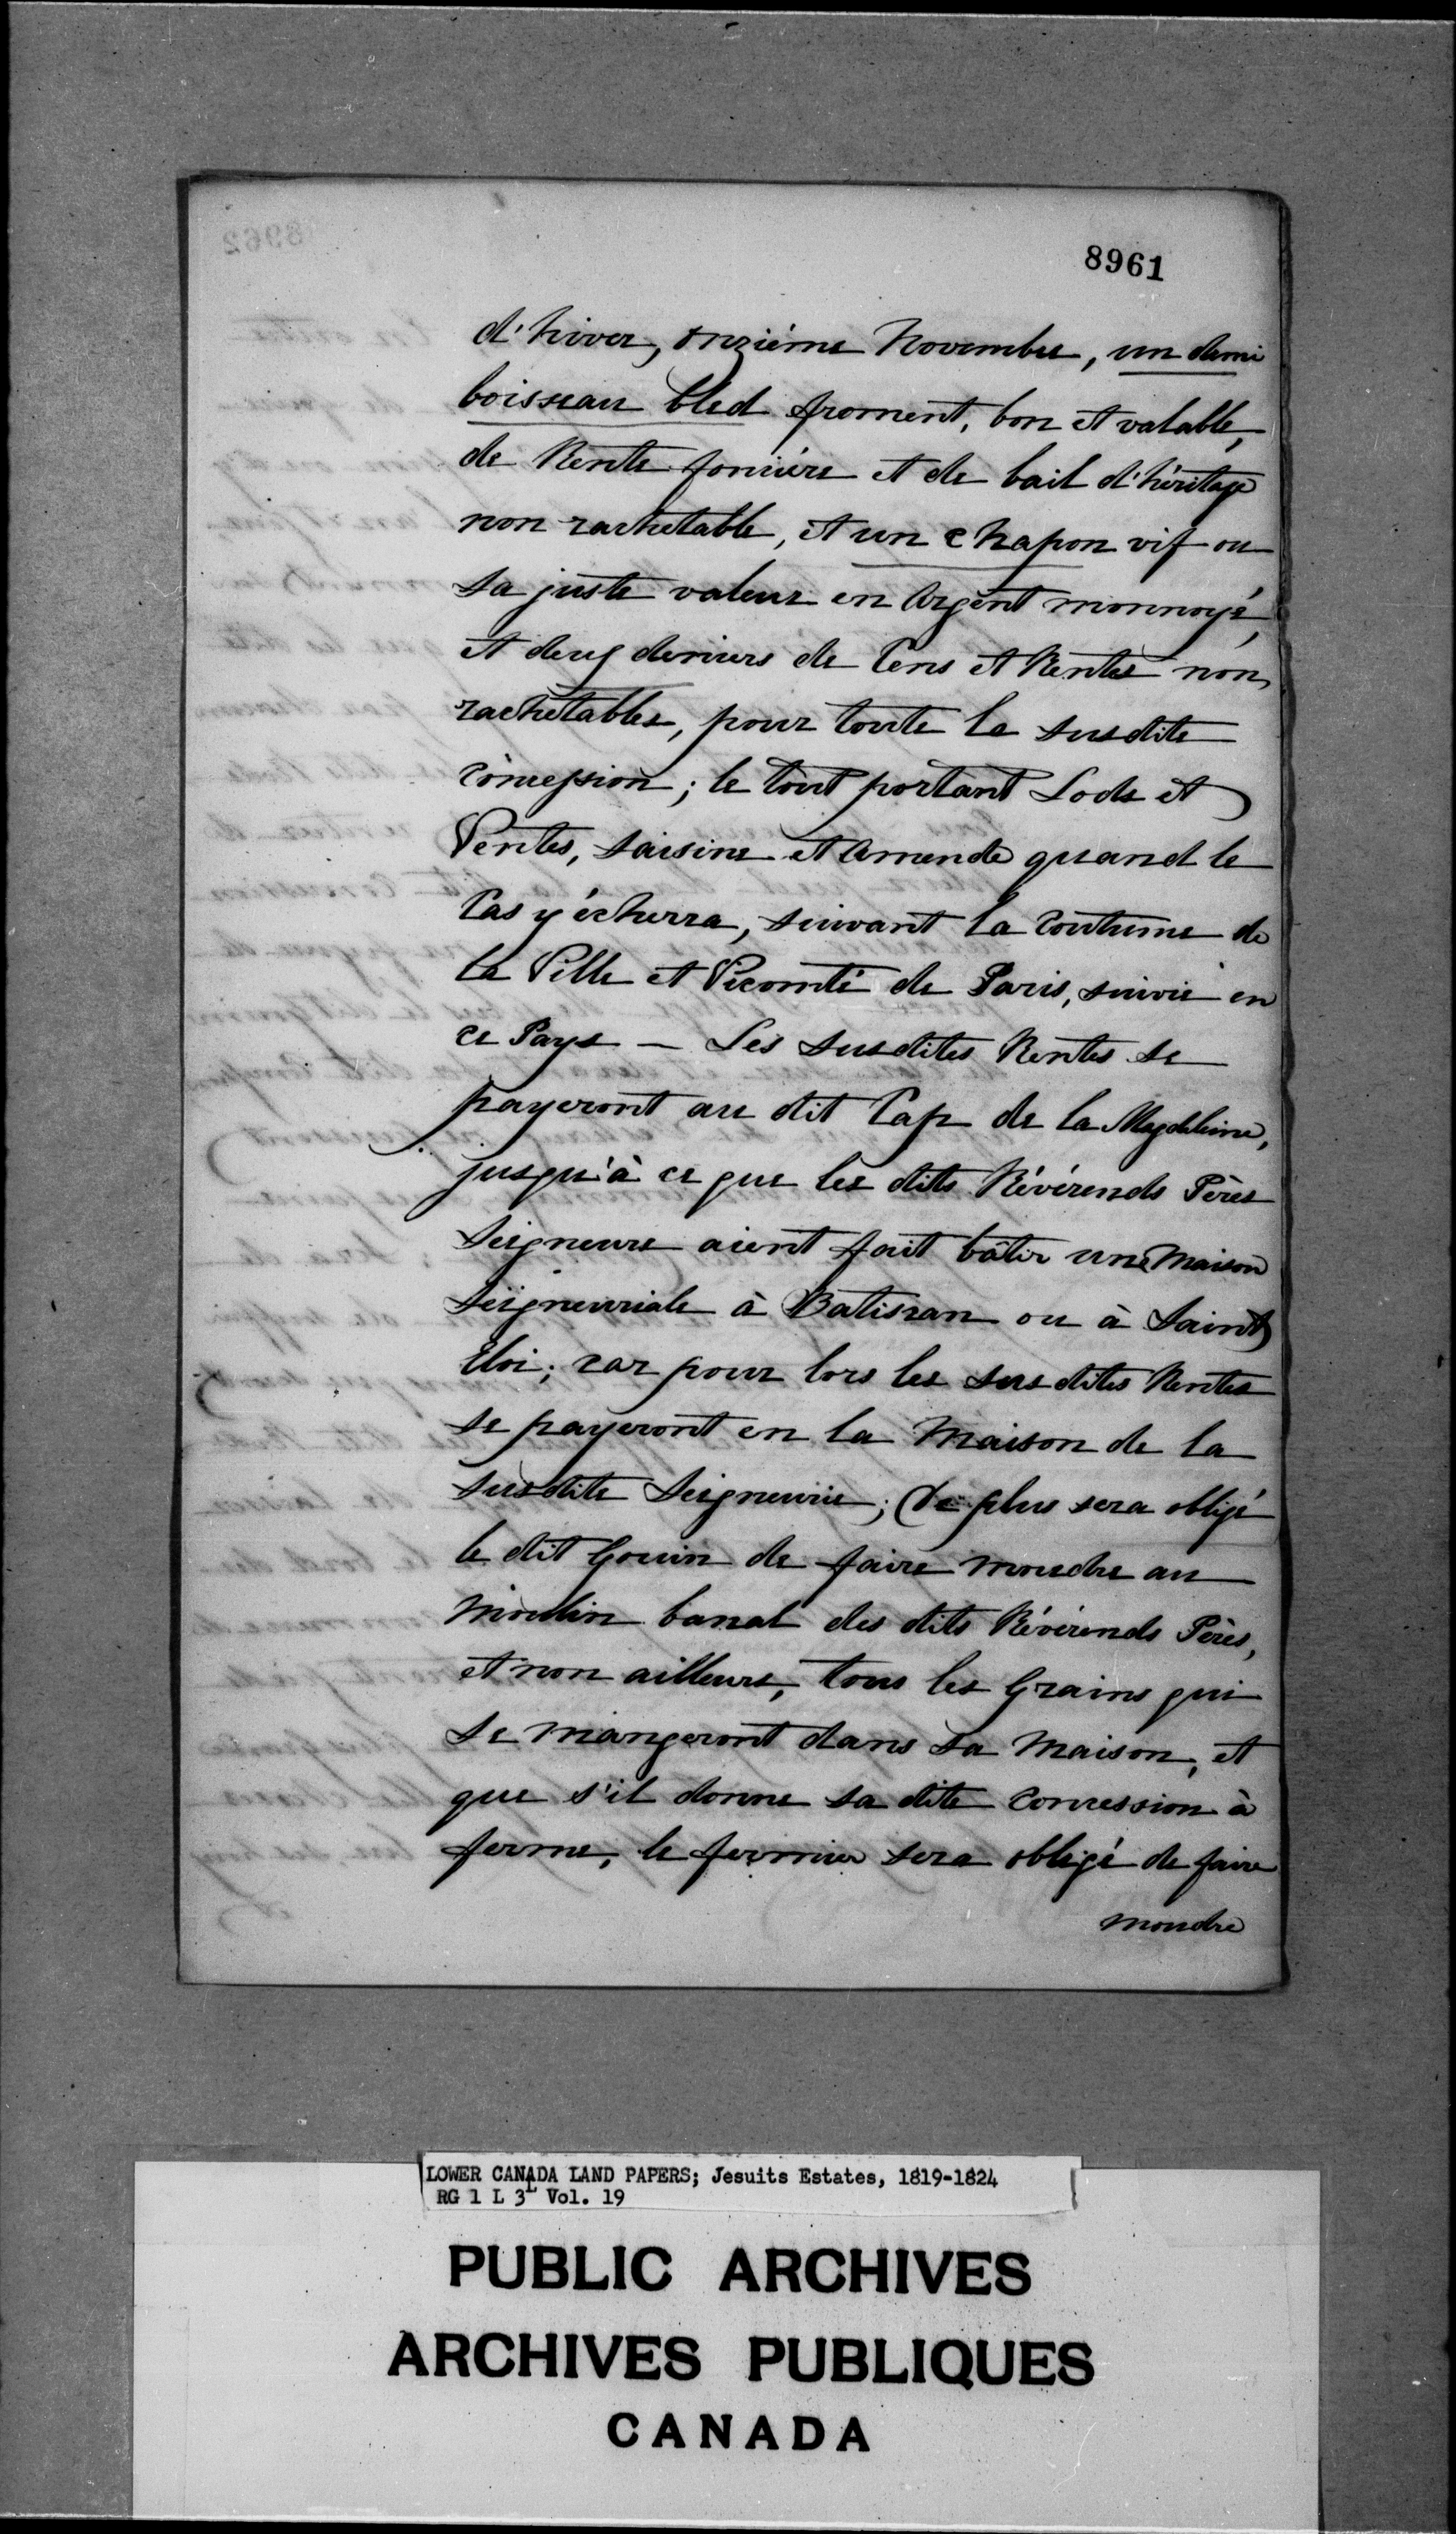 8961
d'hiver, onzième Novembre, un demi
boisseau bled froment, bon et valable,
de Rente foncière et de bail d'héritage
non rachetable, et un chapon vif ou
sa juste valeur en Argent monnoyé,
et deux deniers de Cens et Rentes non
rachetables, pour toute la susdite
concession; le tout portant Lods et
Ventes, saisine et Amende quand le
Cas y écherra, suivant la Coutume de
la Ville et Vicomté de Paris, suivie en
ce Pays — Les susdites Rentes se
payeront au dit Cap de la Magdeleine,
jusqu'à ce que les dits Révérends Pères
Seigneurs aient fait bâtir une Maison
Seigneuriale à Batiscan ou à Saint
Eloi; car pour lors les susdites Rentes
se payeront en la Maison de la
susdite Seigneurie; De plus sera obligé
le dit Gouin de faire moudre au
Moulin banal des dits Révérends Pères,
et non ailleurs, tous les Grains qui
se mangeront dans sa Maison, et
que s'il donne sa dite concession à
ferme, le fermier sera obligé de faire
moudre
LOWER CANADA LAND PAPERS; Jesuits Estates, 1819-1824
RG 1 L 3L Vol. 19
PUBLIC ARCHIVES
ARCHIVES PUBLIQUES
CANADA